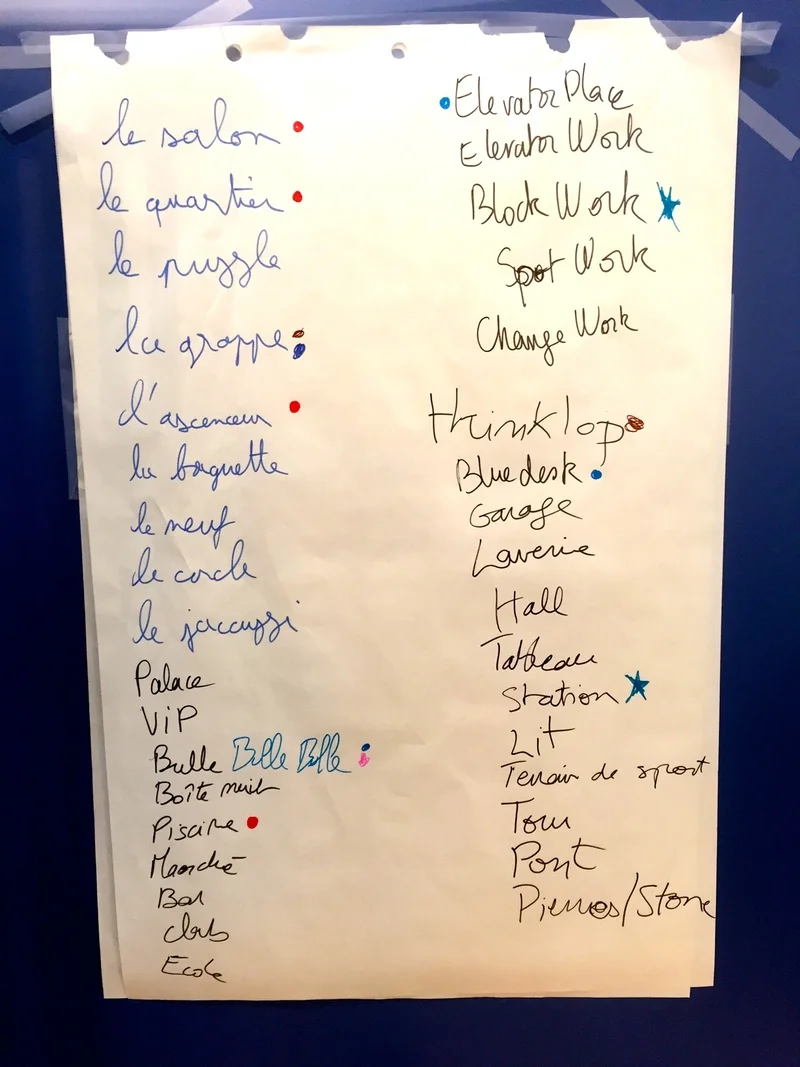 le salon
le quartier
le puzzle
la grappe
l'ascenceur
la baguette
le neuf
le cercle
le jaccuzzi
Palace
ViP
Bulle Bulle Bulle
Boîte nuit
Piscine
Marché
Bar
club
Ecole
Elevator Place
Elevator Work
Block Work
Spot Work
Change Work
thinklop
Bluedesk
Garage
Laverie
Hall
Tableau
Station
Lit
Terrain de sport
Tour
Pont
Pierres/Stone